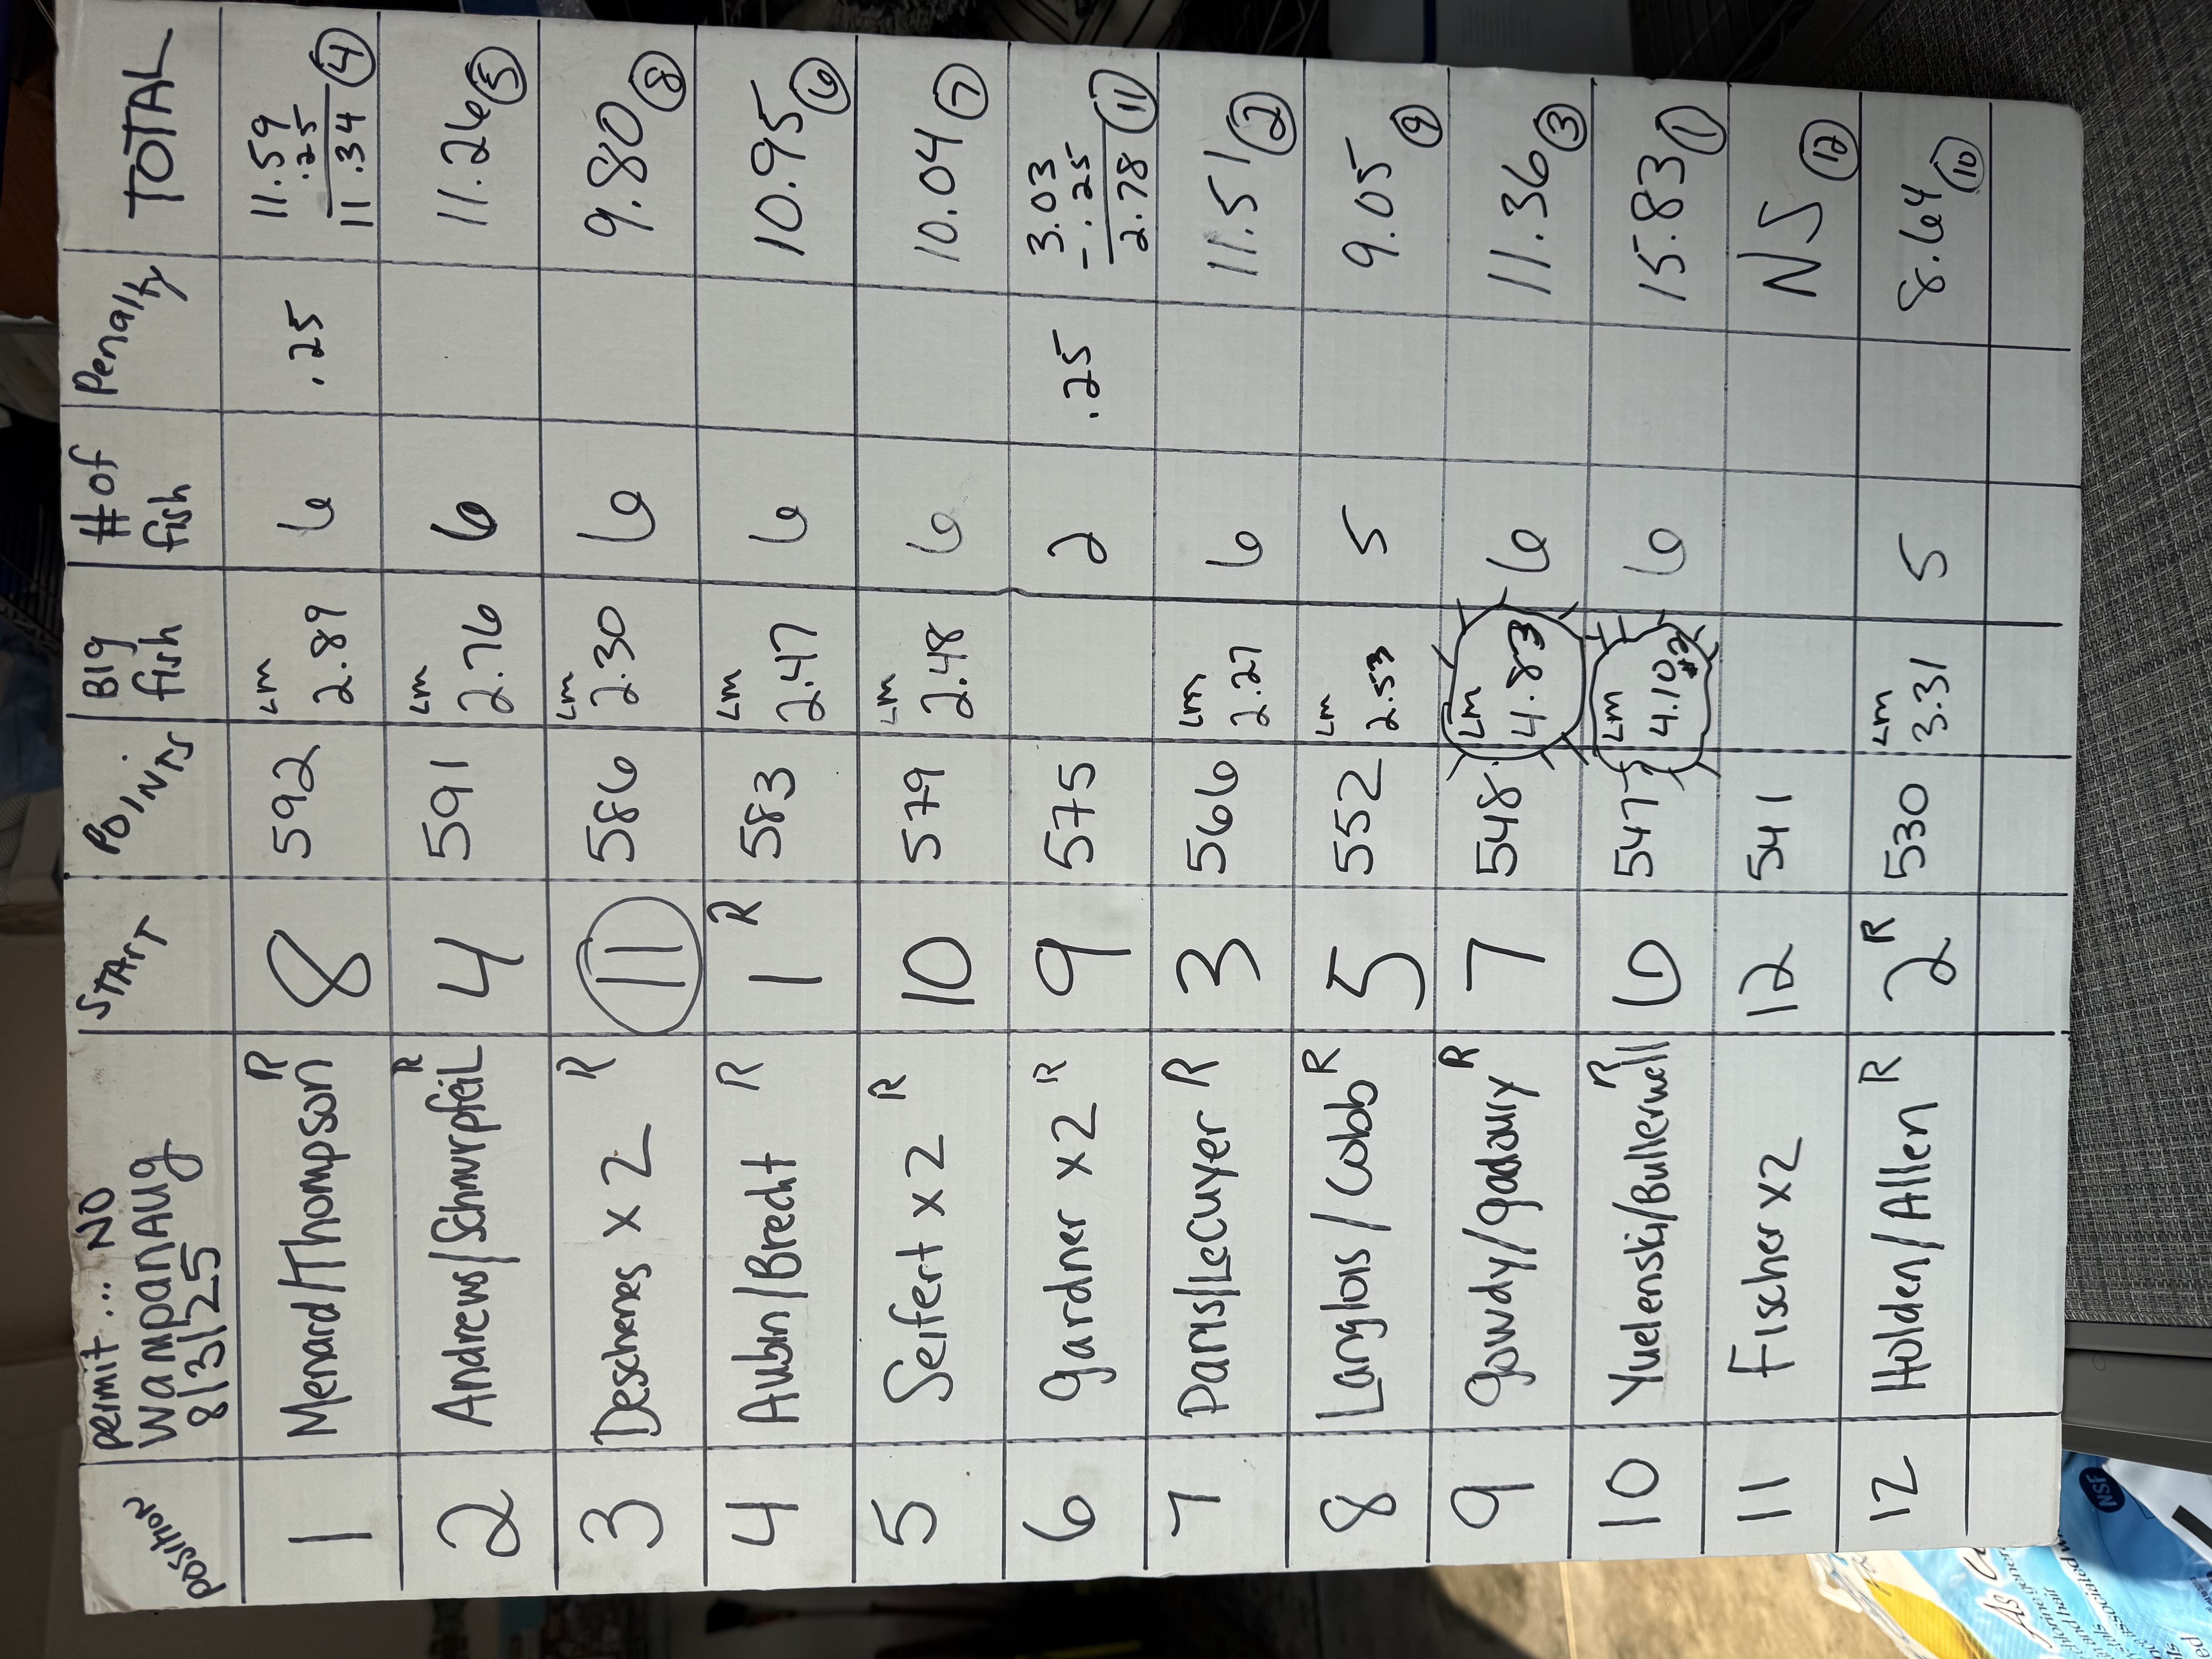 Position permit... NO START POINTS BIG fish # of fish Penalty TOTAL
Wampanaug
8/3/25
1 Menard/Thompson R 8 592 Lm 2.89 6 .25 11.59
.25
11.34 4
2 Andrews/Schnurpfeil R 4 591 Lm 2.76 6 11.26 5
3 Deschenes x 2 R 11 586 Lm 2.30 6 9.80 8
4 Aubin/Brecht R 1 R 583 Lm 2.47 6 10.95 6
5 Seifert x 2 R 10 579 Lm 2.48 6 10.04 7
6 Gardner x 2 R 9 575 2 .25 3.03
-.25
2.78 11
7 Paris/LeCuyer R 3 566 Lm 2.27 6 11.51 2
8 Langlois/Cobb R 5 552 Lm 2.53 5 9.05 9
9 Gowdy/Gadoury R 7 548 Lm 4.83 6 11.36 3
10 Yuelenski/Bullerwell R 6 547 Lm 4.10 #2 6 15.83 1
11 Fischer x2 12 541 NS 12
12 Holden/Allen R 2 R 530 Lm 3.31 5 8.64 10
NSF